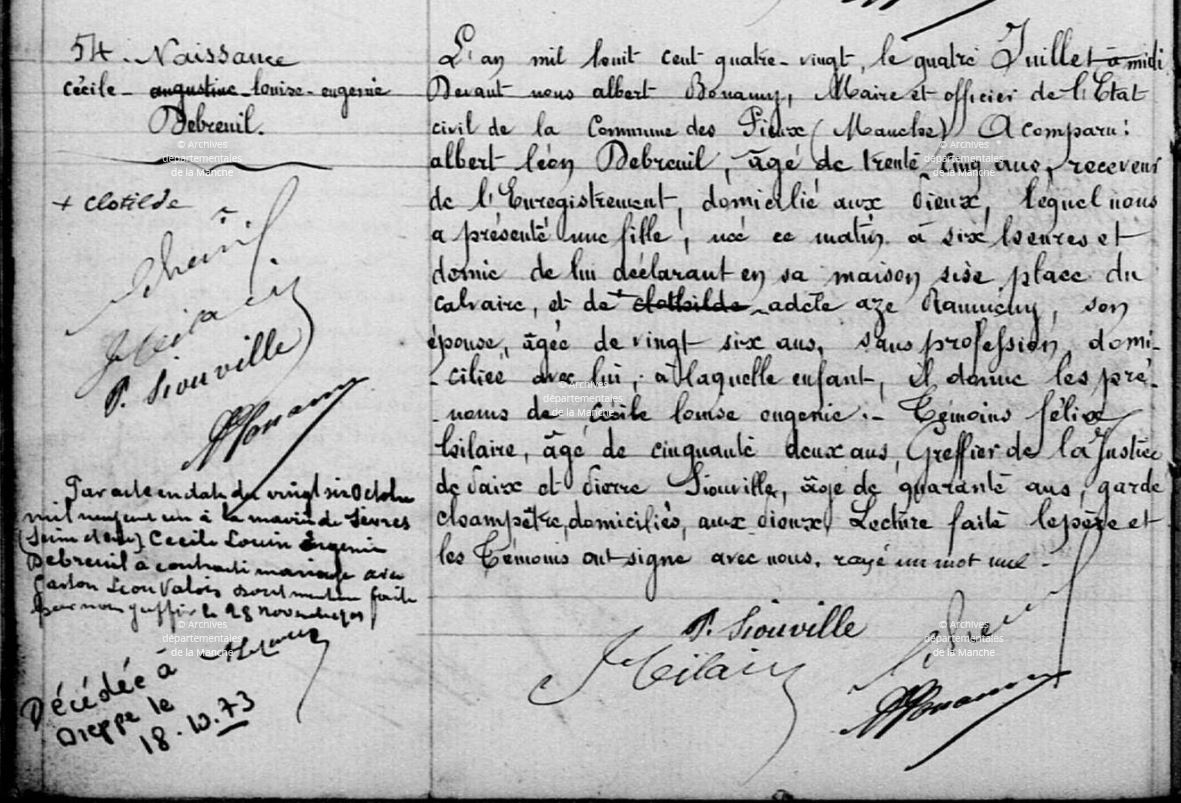 54. Naissance
cécile - augustine - louise - eugenie
Debreuil.
+ clotilde
Hilaire
P. Siouville
ABonamy
Par acte en date du vingt six Octobre
mil neuf cent un à la mairie de Sèvres
(Seine et Oise) Cécile Louise Eugenie
Debreuil a contracté mariage avec
Gaston Léon Valois dont mention faite
par nous greffier le 28 novembre
Décédée à
Dieppe le
18.10.73
L'an mil huit cent quatre-vingt, le quatre Juillet à midi
Devant nous albert Bonamy, Maire et officier de l'Etat
civil de la Commune des Pieux (Manche) A comparu:
albert léon Debreuil, âgé de trente cinq ans, receveur
de l'Enregistrement, domicilié aux Pieux, lequel nous
a présenté une fille, née ce matin à six heures et
demie de lui déclarant en sa maison sise place du
calvaire, et de + clothilde adèle aze son
épouse, âgée de vingt six ans, sans profession domi-
-ciliée avec lui, à laquelle enfant, il donne les pré-
-noms de Cécile louise eugenie :- Témoins félix
hilaire, âgé de cinquante deux ans, Greffier de la Justice
de Paix et Pierre Siouville, âgé de quarante ans, garde
champêtre, domiciliés, aux Pieux, Lecture faite le père et
les Témoins ont signé avec nous. rayé un mot nul -
P. Siouville
Hilaire
ABonamy
© Archives
départementales
de la Manche
© Archives
départementales
de la Manche
© Archives
départementales
de la Manche
© Archives
départementales
de la Manche
© Archives
départementales
de la Manche